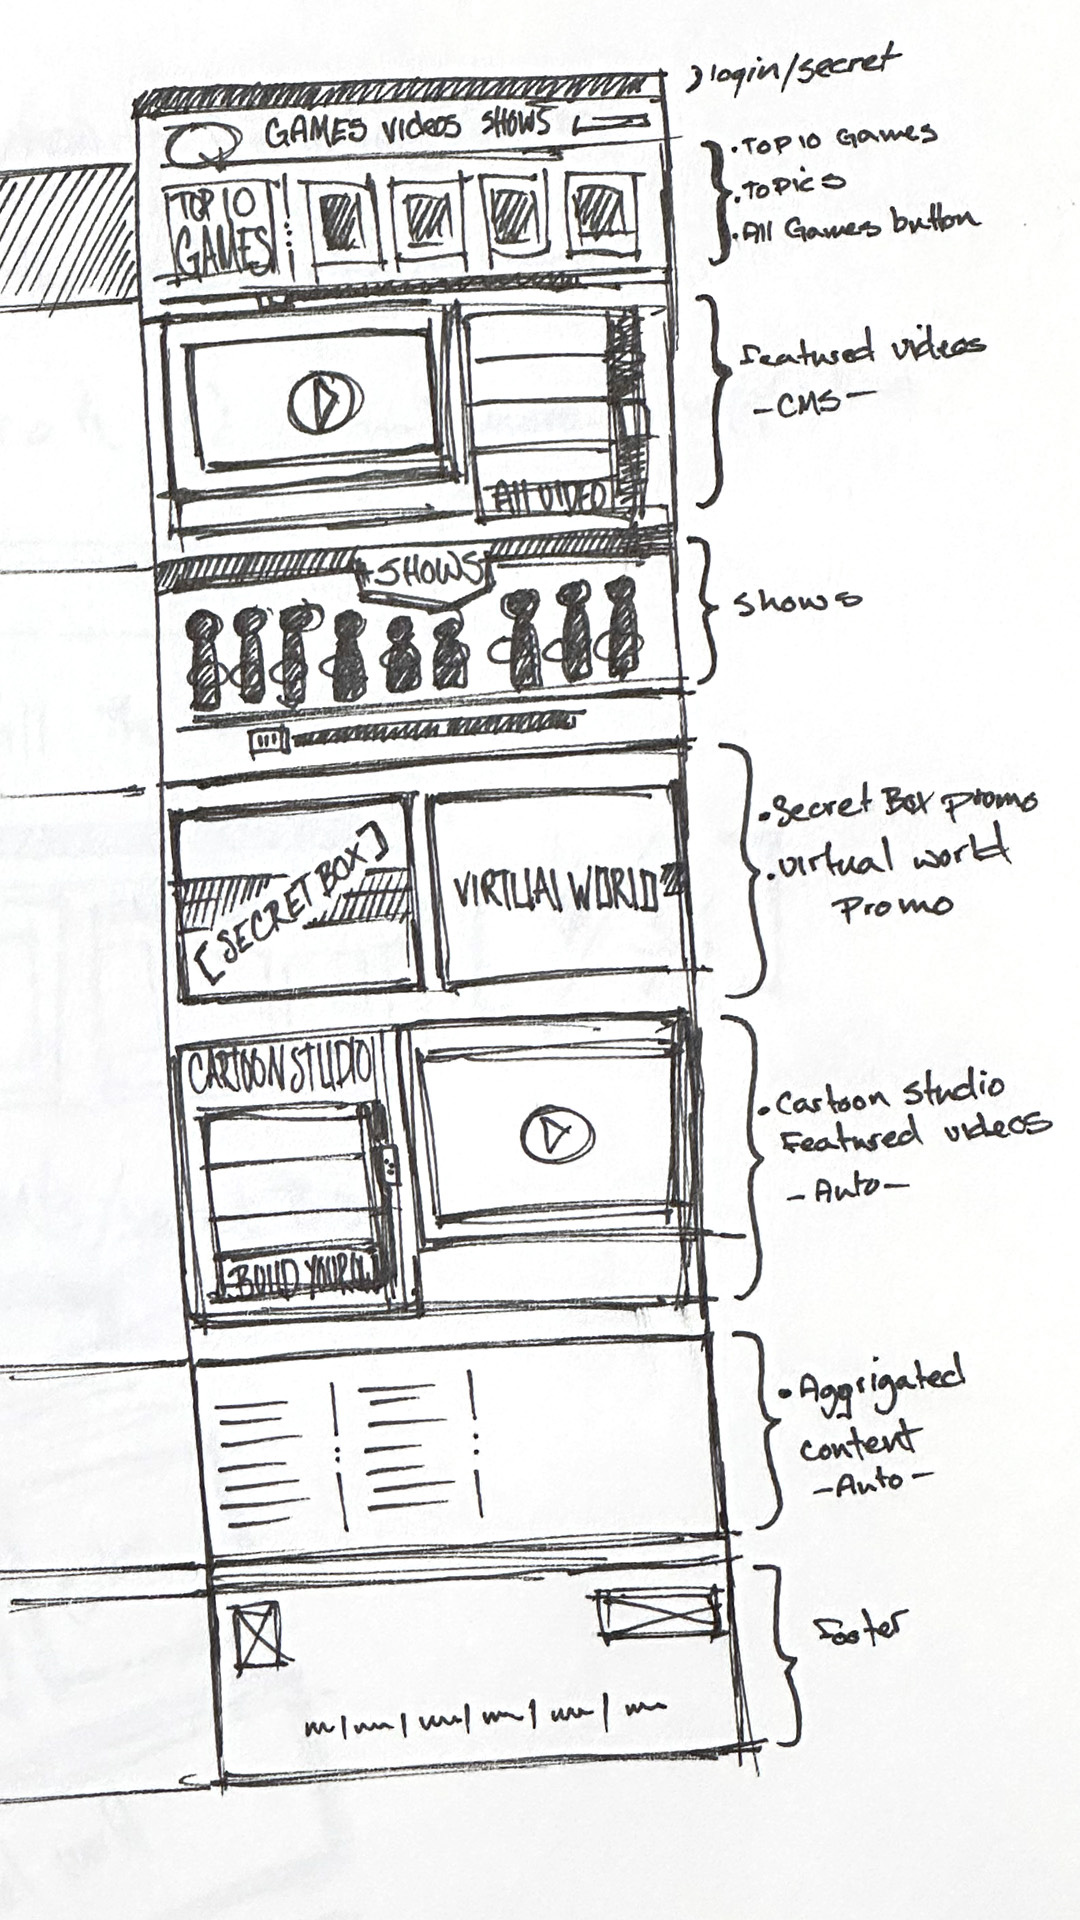 login/secret
GAMES VIDEOS SHOWS
TOP 10
GAMES
• TOP 10 Games
• Topics
• All Games button
Featured videos
- CMS -
All VIDEO
SHOWS
Shows
[SECRET BOX]
VIRTUAL WORLD
• Secret Box promo
• virtual world
promo
CARTOON STUDIO
BUILD YOUR
• Cartoon Studio
Featured videos
- Auto -
• Aggrigated
content
- Auto -
Footer